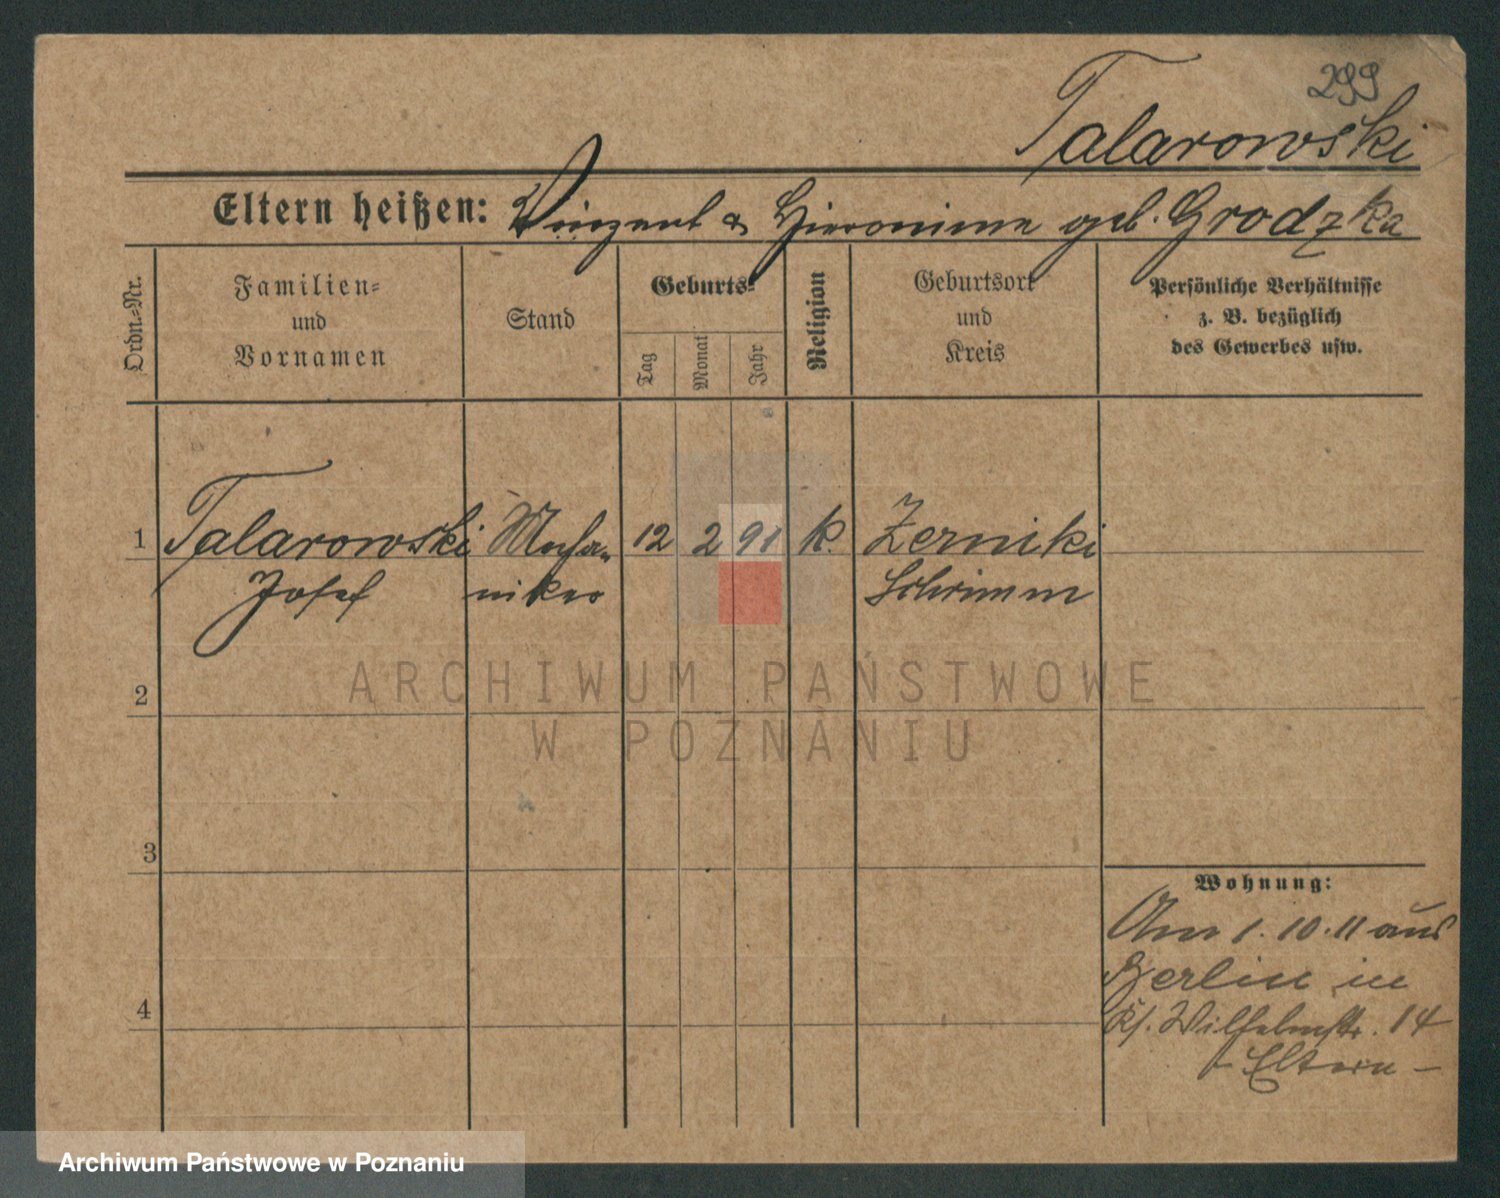 299
Talarowski
Eltern heißen: Vinzent & Hieronime geb. Grodzka
Ordn.-Nr.
Familien-
und
Vornamen
Stand
Geburts-
Tag
Monat
Jahr
Religion
Geburtsort
und
Kreis
Persönliche Verhältnisse
z. B. bezüglich
des Gewerbes usw.
1 Talarowski Mecha- 12 2 91 k. Zerniki
Josef niker Schrimm
2
3
4
Wohnung:
Am 1. 10. 11 aus
Berlin in
Wilhelmstr. 14
- Eltern -
ARCHIWUM PAŃSTWOWE
W POZNANIU
Archiwum Państwowe w Poznaniu